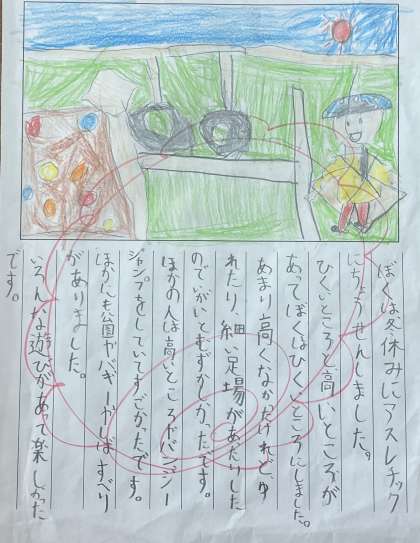 ぼくは冬休みにアスレチック
にちょうせんしました。
ひくいところと高いところが
あってぼくはひくいところにしました。
あまり高くなかったけれど、ゆ
れたり、細い足場があったりした
のでいがいとむずかしかったです。
ほかの人は高いところでバンジー
ジャンプをしていてすごかったです。
ほかにも公園やバギーやしばすべり
がありました。
いろんな遊びがあって楽しかった
です。